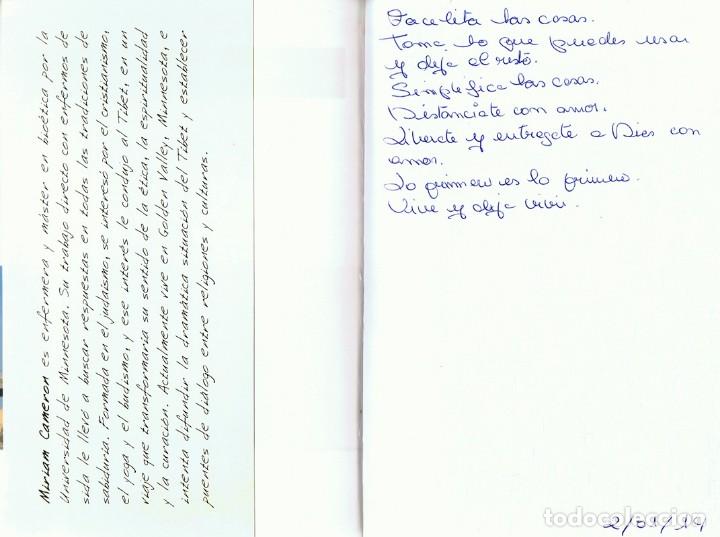 Miriam Cameron es enfermera y máster en bioética por la
Universidad de Minnesota. Su trabajo directo con enfermos de
sida le llevó a buscar respuestas en todas las tradiciones de
sabiduría. Formada en el judaísmo, se interesó por el cristianismo,
el yoga y el budismo, y ese interés le condujo al Tíbet, en un
viaje que transformaría su sentido de la ética, la espiritualidad
y la curación. Actualmente vive en Golden Valley, Minnesota, e
intenta difundir la dramática situación del Tíbet y establecer
puentes de diálogo entre religiones y culturas.
Facelita las cosas.
Toma lo que puedes usar
y deja el resto.
Simplifica las cosas.
Distánciate con amor.
Libérate y entregate a Dios con
amor.
Lo primero es lo primero.
Vive y deja vivir.
todocoleccion.net